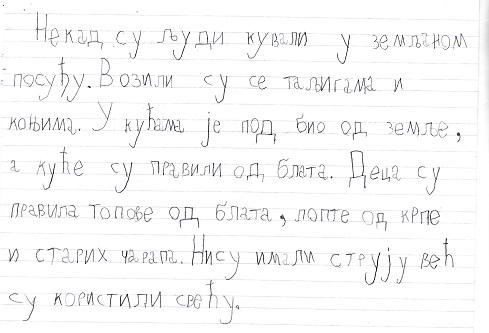 Некад су људи кували у земљаном
посуђу. Возили су се таљигама и
коњима. У кућама је под био од земље,
а куће су правили од блата. Деца су
правила топове од блата, лопте од крпе
и старих чарапа. Нису имали струју већ
су користили свећу.